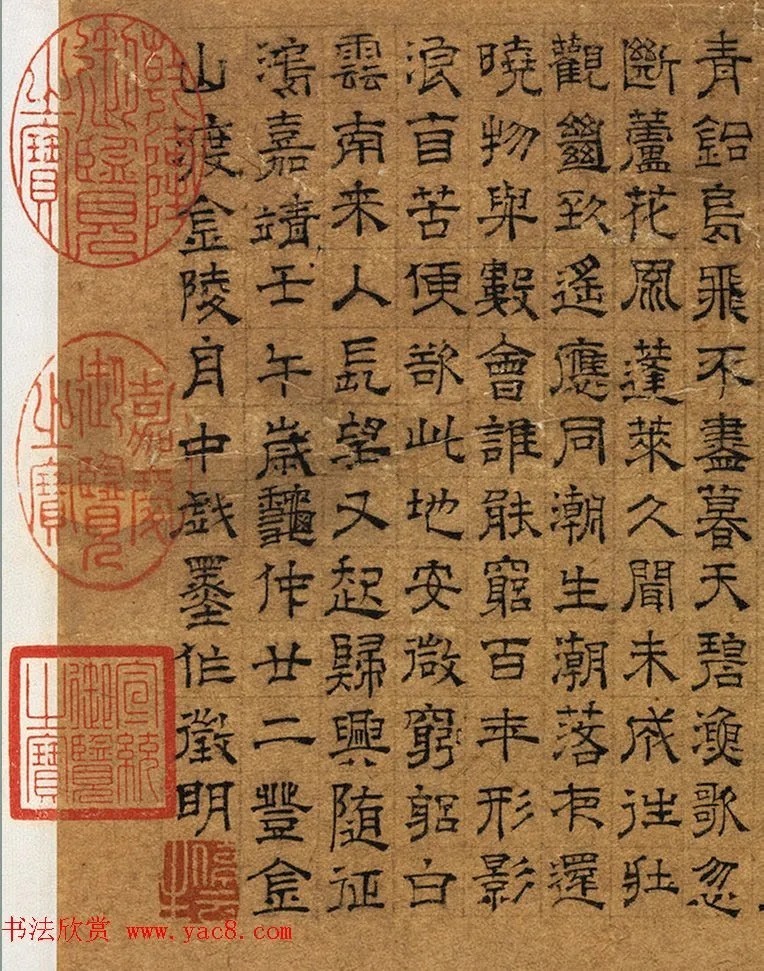 青鉛鳥飛不盡暮天碧漁歌忽
斷蘆花風蓬萊久聞未成往壯
觀絕致遙應同潮生潮落夜還
曉物與數會誰能窮百年形影
浪自苦便欲此地安微窮躬白
雲南来人長望又起歸興随征
鴻嘉靖壬午歲龝仲廿二登金
山渡金陵舟中戱墨作徵明
乾隆御覽之寶
嘉慶御覽之寶
宣統御覽之寶
书法欣赏 www.yac8.com